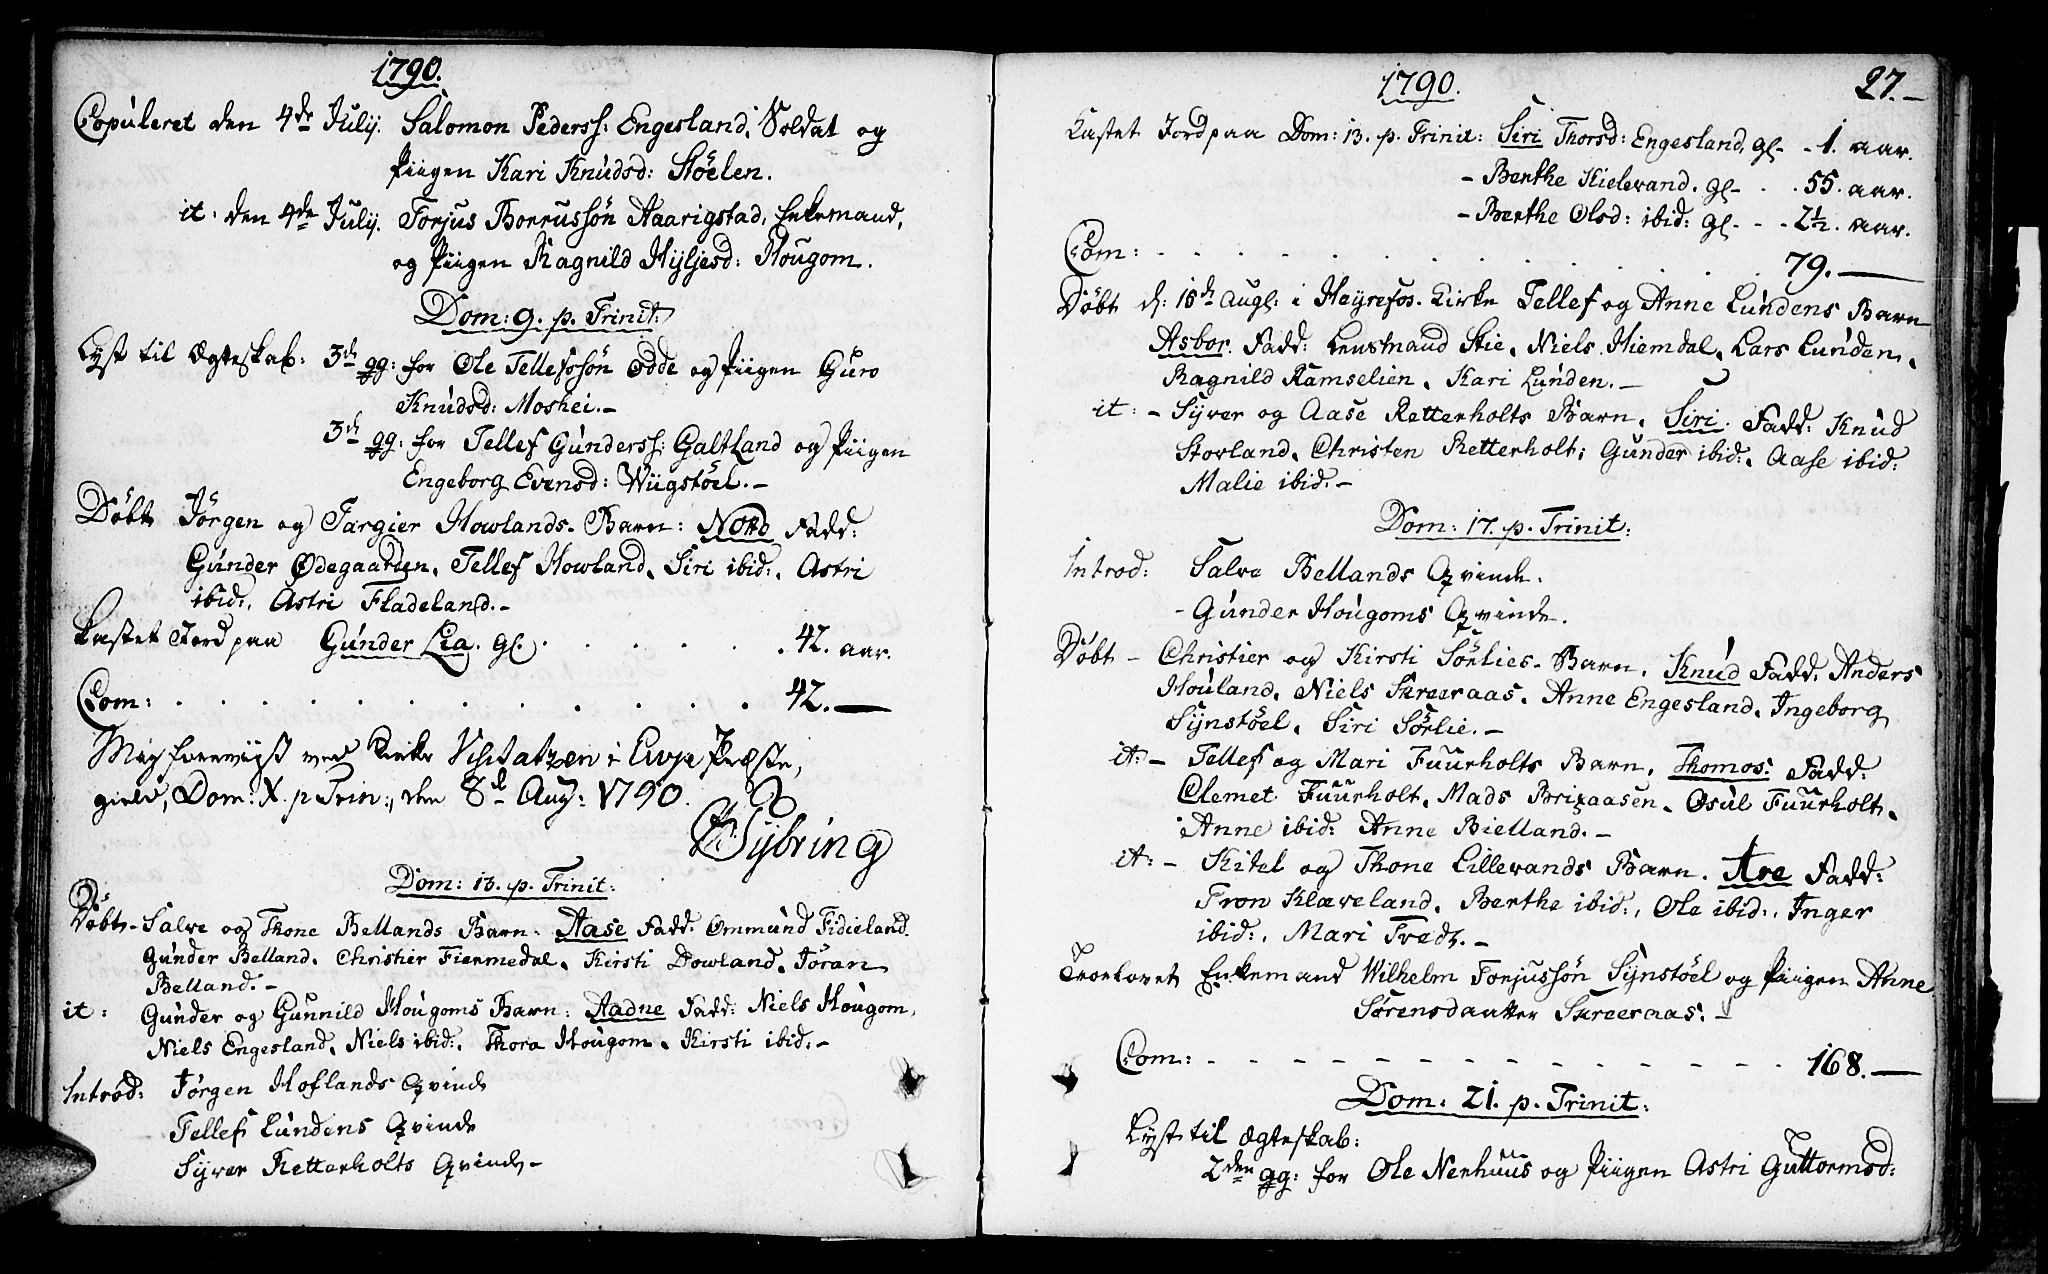 1790.
Copuleret den 4de July. Salomon Pederss: Engesland, Soldat og
Piigen Kari Knudsd: Stöelen.
it: den 4de July. Torjus Borrussön Aaarigstad, Enkemand,
og Piigen Ragnild Hyljesd: Hougom.
Dom: 9. p. Trinit:
Lyst til Ægteskab: 3de gg: for Ole Tellefssön Odde og Piigen Guro
Knudsd: Moskei.-
3de gg: for Tellef Gunderss: Galtland og Piigen
Engeborg Evensd: Wiigstöel.-
Döbt Jörgen og Targier Howlands Barn: Nord Fadd:
Gunder Ødegaarden, Tellef Howland, Siri ibid:, Astri
ibid:, Astri Fladeland.-
Kastet Jord paa Gunder Lia. gl. 42. aar.
Com: 42.-
Mig foreviist ved Kirke Visitatzen i Evje Præste,
gield, Dom: X. p Trin:, den 8de Aug: 1790.
Sybring
Dom: 13. p. Trinit:
Döbt- Salve og Thone Bellands Barn: Aase Fadd: Ommund Fidieland.
Gunder Belland, Christier Fiermedal, Kirsti Dowland, Jöran
Belland.-
it: Gunder og Gunnild Hougoms Barn: Aadne Fadd: Niels Hougom,
Niels Engesland, Niels ibid:, Thora Hougom, Kirsti ibid:-
Introd: Jörgen Hoflands Qvinde
Tellef Lundens Qvinde
Syver Retterholts Qvinde-
1790. 27.-
Kastet Jord paa Dom: 13. p. Trinit: Siri Thorsd: Engesland, gl- - 1. aar.
- Berthe Kielevand. gl- . . 55. aar.
- Berthe Olsd: ibid: gl- - - 2½. aar.
Com: 79.-
Döbt d: 15de Augl: i Heyrefos Kirke Tellef og Anne Lundens Barn
Asbor. Fadd: Lensmand Stie, Niels Hiemdal, Lars Lunden,
Ragnild Ramselien, Kari Lunden.-
it: - Syver og Aase Retterholts Barn, Siri. Fadd: Knud
Storland, Christen Retterholt; Gunder ibid:, Aase ibid:
Malie ibid.-
Dom: 17. p. Trinit:
Introd: Salve Bellands Qvinde.
- Gunder Hougoms Qvinde.
Döbt - Christier og Kirsti Sörlies Barn, Knud Fadd. Anders
Houland, Niels Skreeraas, Anne Engesland, Ingeborg
Synstöel, Siri Sörlie.-
it: - Tellef og Mari Fuurholts Barn, Thomos: Fadd:
Clemet Fuurholt, Mads Brigaasen, Osul Fuurholt,
Anne ibid: Anne Bielland.-
it: - Kitel og Thone Lillevands Barn. Are Fadd:
Tron Klæveland, Berthe ibid:, Ole ibid:, Inger
ibid:, Mari Tredt.-
Troelovet Enkemand Wilhelm Torjussön Synstöel og Piigen Anne
Sörensdaatter Skreeraas.-
Com: 168.-
Dom: 21. p. Trinit:
Lyst til Ægteskab:
2den gg: for Ole Nerhuus og Piigen Astri Guttormsd: